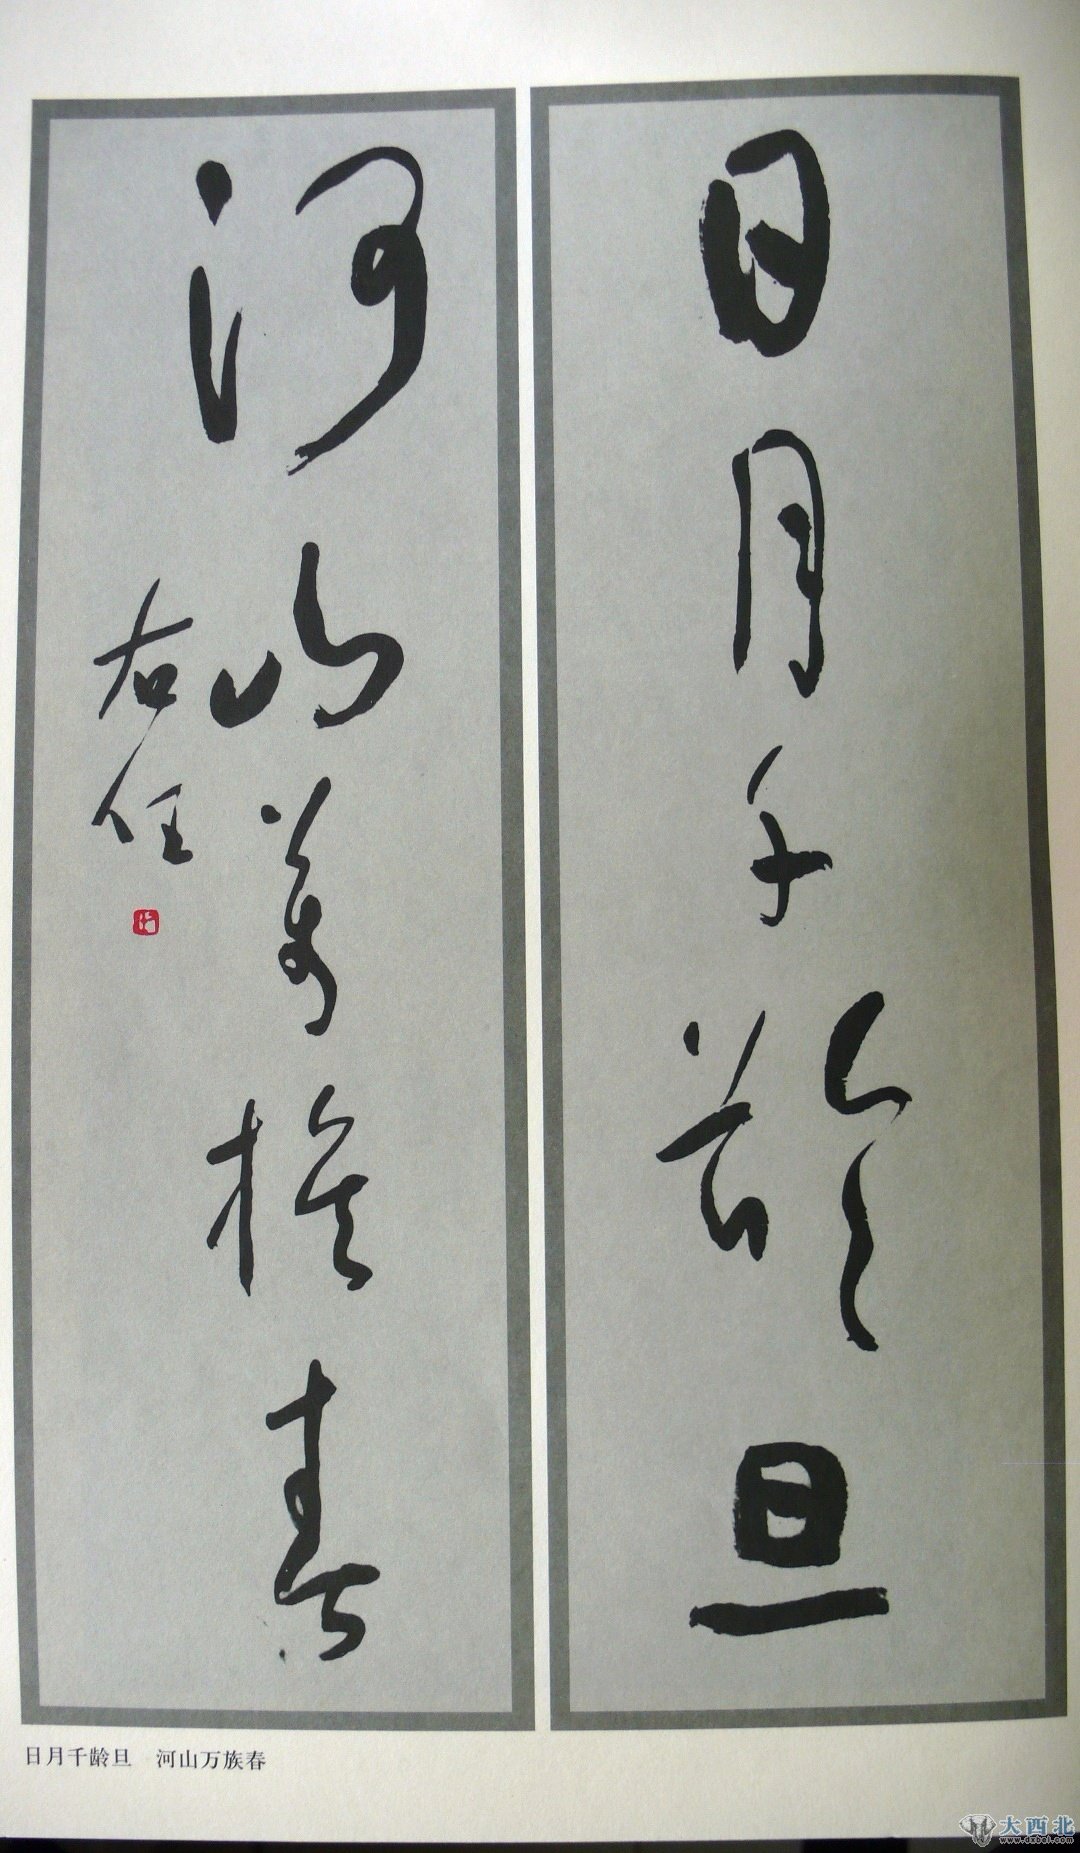 日月千齡旦
河山萬族春
右任
日月千龄旦　河山万族春
大西北
www.dxbei.com